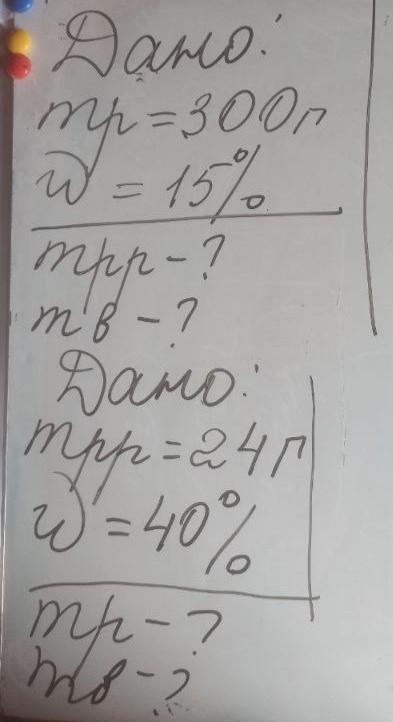 Дано:
mр = 300г
w = 15%
mрр - ?
mв - ?
Дано:
mрр = 24г
w = 40%
mр - ?
mв - ?